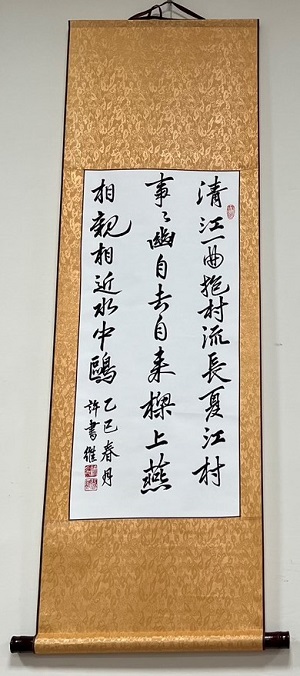 清江一曲抱村流長夏江村
事〻幽自去自来樑上燕
相親相近水中鷗
乙巳春月
許書維